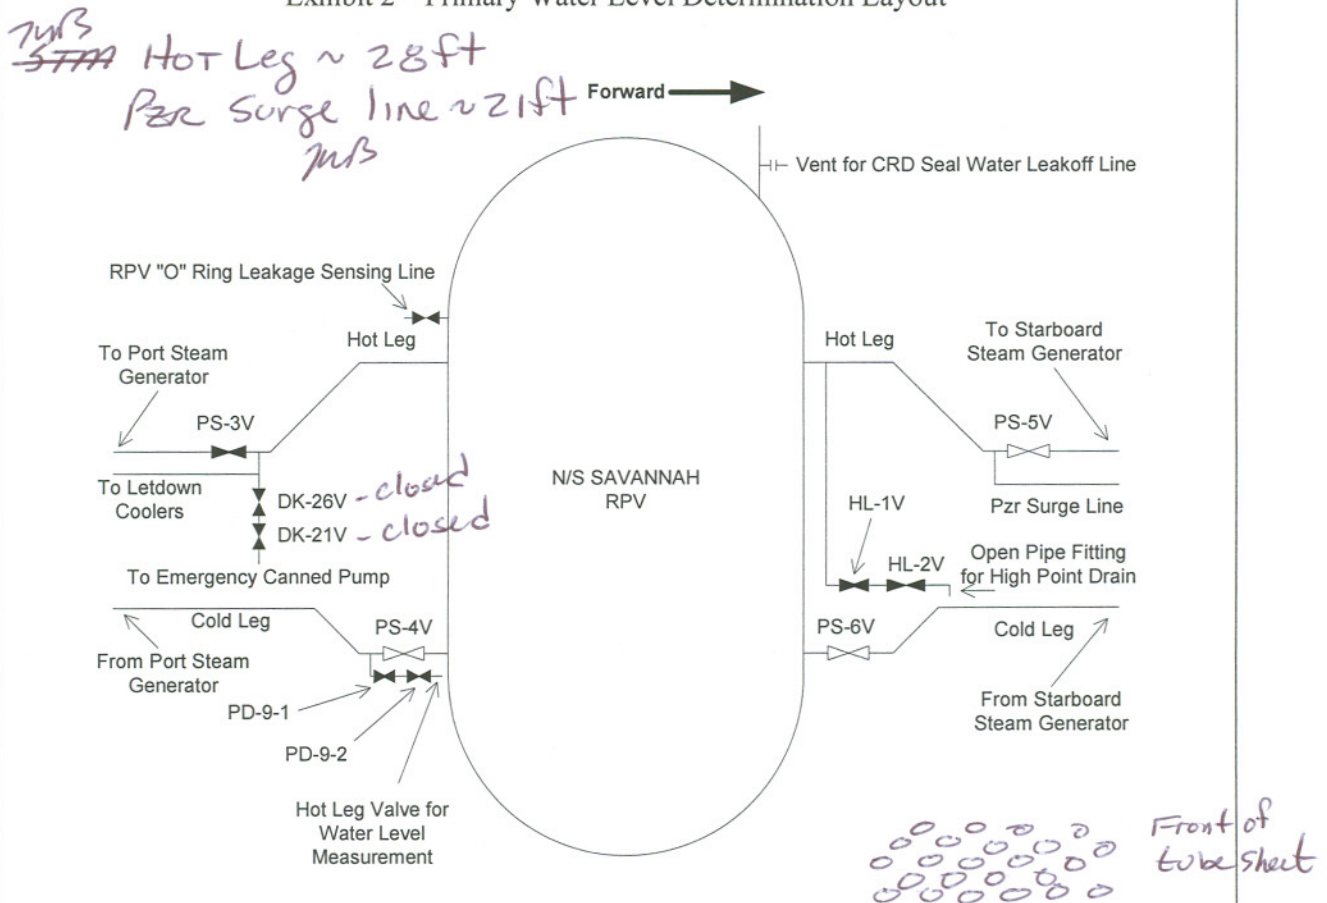 Exhibit 2 – Primary Water Level Determination Layout
STM Hot Leg ~ 28ft
Pzr Surge line ~ 21ft
Forward
Vent for CRD Seal Water Leakoff Line
RPV "O" Ring Leakage Sensing Line
Hot Leg
To Port Steam
Generator
PS-3V
To Letdown
Coolers
DK-26V - closed
DK-21V - closed
To Emergency Canned Pump
Cold Leg
PS-4V
From Port Steam
Generator
PD-9-1
PD-9-2
Hot Leg Valve for
Water Level
Measurement
N/S SAVANNAH
RPV
Hot Leg
To Starboard
Steam Generator
PS-5V
Pzr Surge Line
HL-1V
HL-2V
Open Pipe Fitting
for High Point Drain
PS-6V
Cold Leg
From Starboard
Steam Generator
Front of
tube sheet